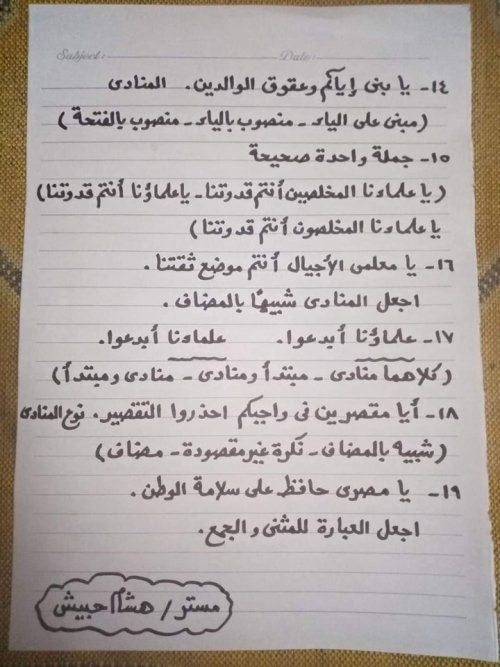 Subject: Date:
١٤- يا بنى إياكم وعقوق الوالدين. المنادى
(مبنى على الياء - منصوب بالياء - منصوب بالفتحة)
١٥- جملة واحدة صحيحة
(يا علماءنا المخلصين أنتم قدوتنا - يا علماؤنا أنتم قدوتنا)
يا علماءنا المخلصون أنتم قدوتنا)
١٦- يا معلمى الأجيال أنتم موضع ثقتنا.
اجعل المنادى شبيهًا بالمضاف.
١٧- علماؤنا أبدعوا. علماءنا أبدعوا.
(كلاهما منادى - مبتدأ ومنادى - منادى ومبتدأ)
١٨- أيا مقصرين فى واجبكم احذروا التقصير. نوع المنادى
(شبيه بالمضاف - نكرة غير مقصودة - مضاف)
١٩- يا مصرى حافظ على سلامة الوطن.
اجعل العبارة للمثنى و الجمع.
مستر / هشام حبيش